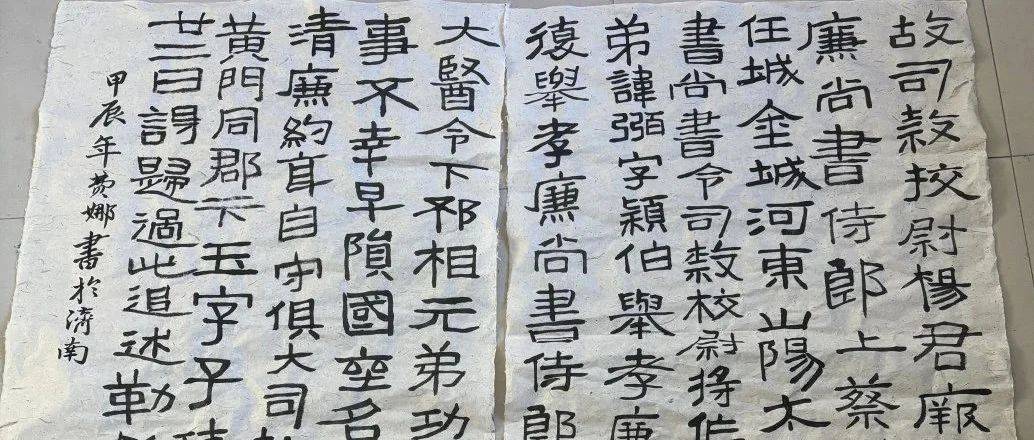 故司隸挍尉楊君厥
廉尚書侍郎上蔡
任城金城河東山陽太
書尚書令司隸校尉將作
弟諱弼字穎伯舉孝廉
復舉孝廉尚書侍郎
大醫令下邳相元弟功
事不幸早隕國喪名
清廉約身自守俱大司
黃門同郡卞玉字子
廿二日謁歸過此追述勒
甲辰年费娜書於濟南